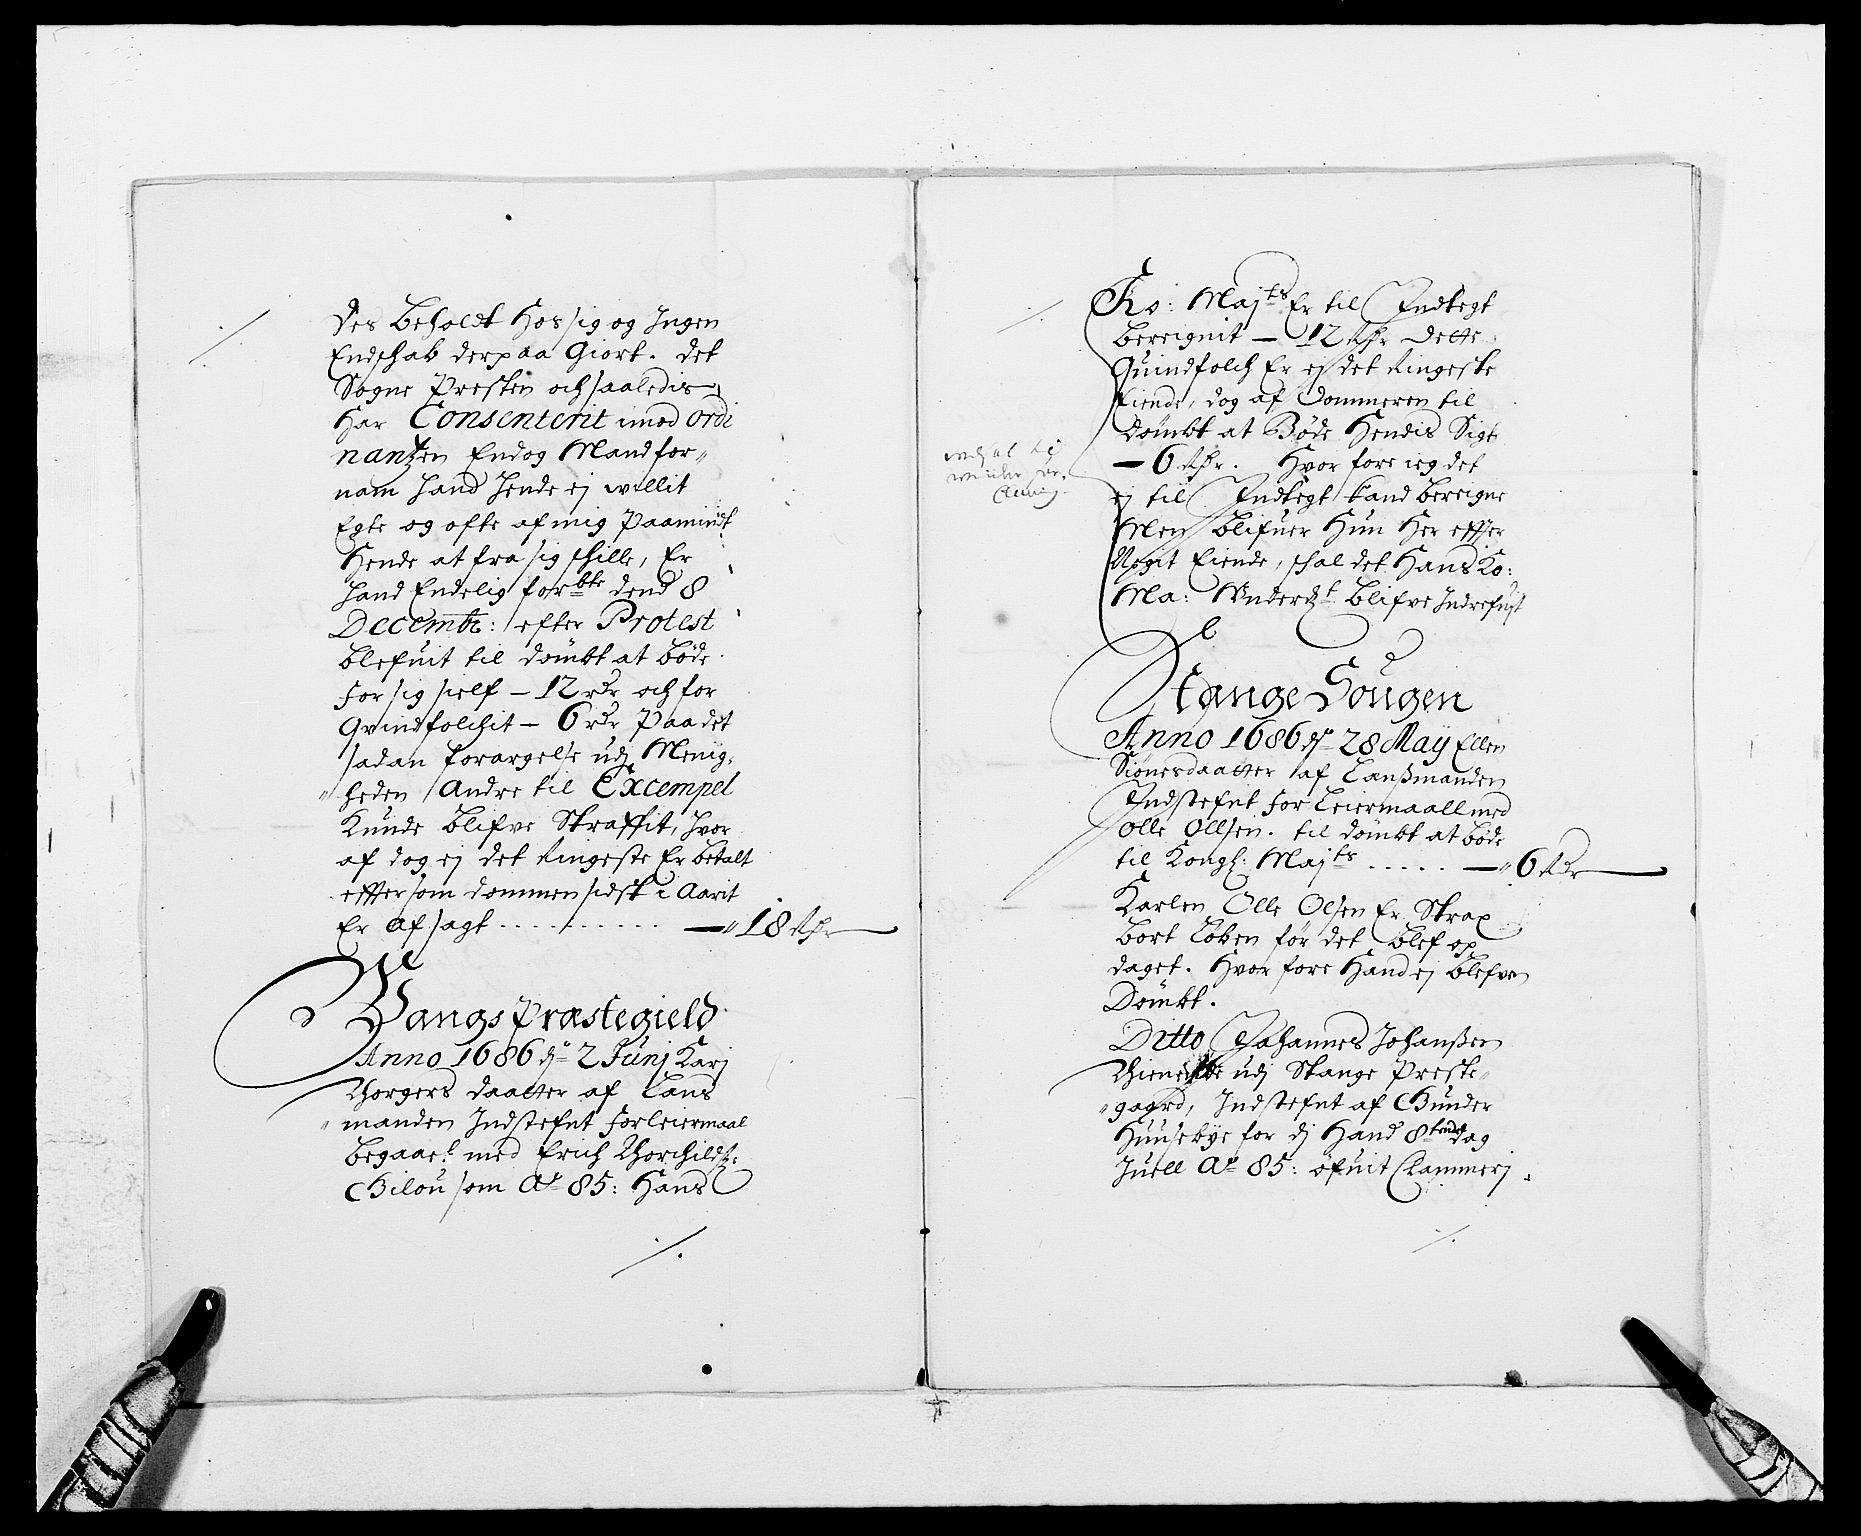 des beholdt hos sig og Ingen
Endschab derpaa Giort. det
Sogne Presten och saaledis
har Consenterit imod ordi
nantzen Endog Mand for„
nam hand hende ej willit
Egte og ofte af mig paamindt
hende at fra sig schille, Er
hand Endelig forbte dend 8
Decembr: efter Protest
blefuit til dømbt at bøde
for sig sielf — 12 rdr och for
Qvindfolchit — 6 rdr paa det
sadan forargelse udj Menig„
„heden Andre til Excempel
kunde blifve Straffit, hvor
af dog ej det Ringeste Er betalt
effter som dommen sidst i Aarit
Er af sagt .......... —„ 18 Rdr
Vangs Præstegield
Anno 1686 dn 2 Junj Karj
Thorgers daatter af Lans
„manden Indstefnt for leiermaal
begaaet med Erich Thorchilds:
som Ao 85: Hans
Ko: Majts Er til Indtegt
bereignit — 12 Rdr dette
Quindfolch Er ej det Ringeste
Eiende, dog af Dommeren til
dømbt at Bøde hendis Sigt
— 6 Rdr. Hvor fore ieg det
ej til Indtegt kand bereigne
Men blifuer hun her effter
Noget Eiende, schal det Hans Ko:
Ma: Vnderdt blifve
Stange Sougen
Anno 1686 dn 28 Maij Ellen
Siønesdaatter af Lanßmanden
Indstefnt for Leiermaall med
Olle Ollsen. til dømbt at bøde
til Kongl: Majts ..... —„ 6 Rdr
Karlen Olle Olsen Er Strax
bort løben før det blef op
daget. Hvor fore Hand ej blefven
Dømbt.
Ditto Johannes Johanßen
Thienende udj Stange Preste„
„gaard, Indstefnt af Gunder
Huusebye for dj Hand 8tende dag
Juell Ao 85: øfuit Clammerj